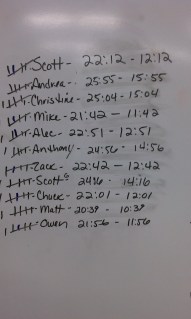 Scott - 22:12 - 12:12
Andrea - 25:55 - 15:55
Christine - 25:04 - 15:04
Mike - 21:42 - 11:42
Alec - 22:51 - 12:51
Anthony - 24:56 - 14:56
Zack - 22:42 - 12:42
Scott G 24:16 - 14:16
Chuck - 22:01 - 12:01
Matt - 20:39 - 10:39
Owen - 21:56 - 11:56